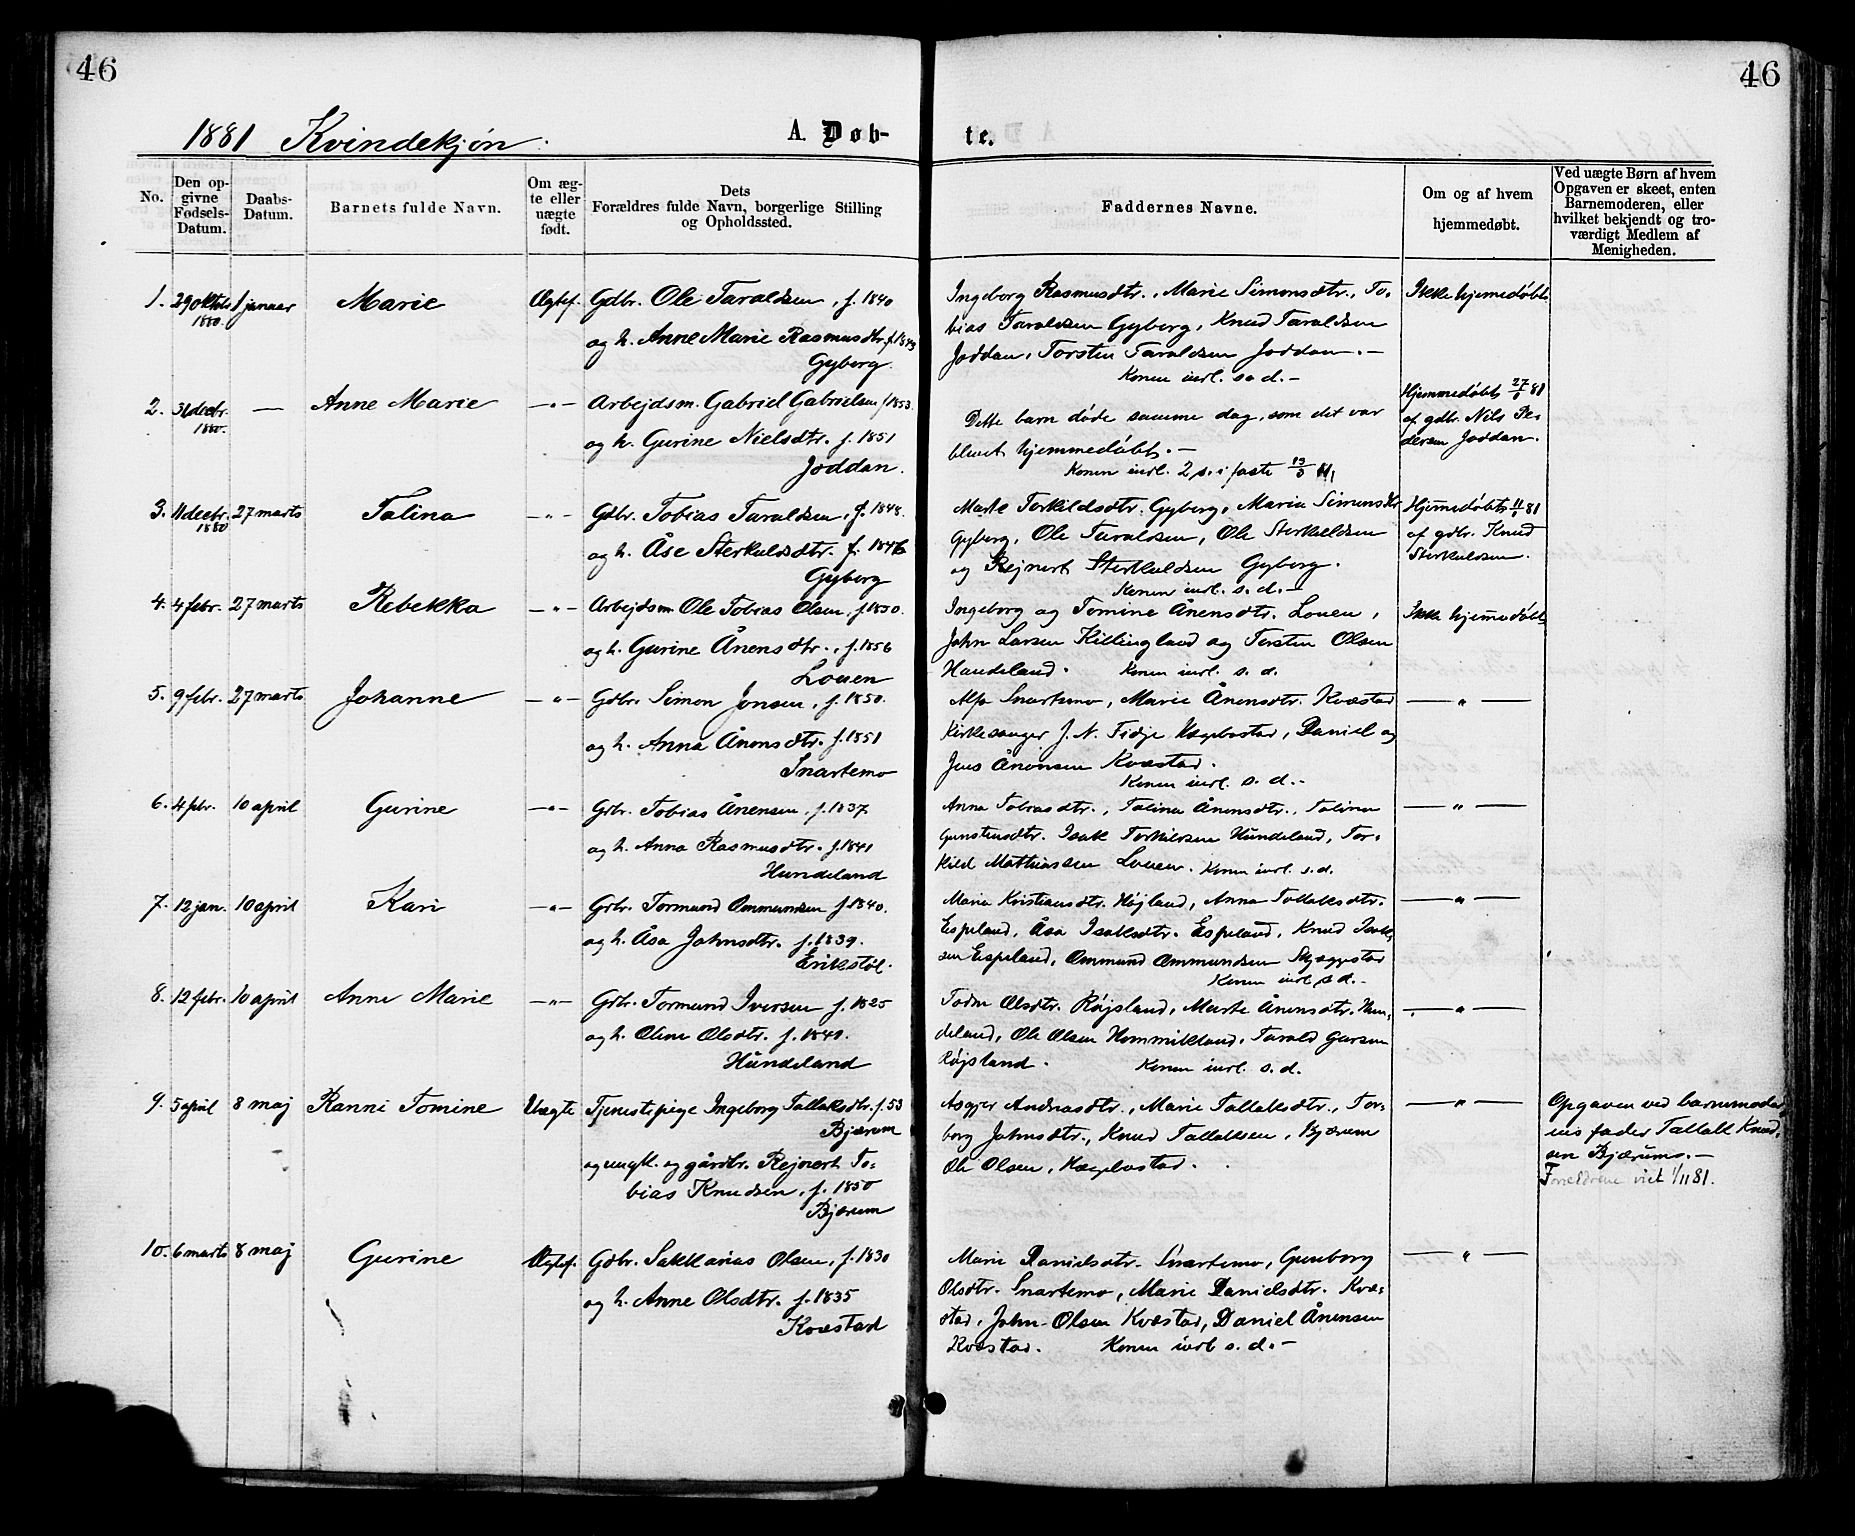 46
46
1881 Kvindekjøn.
A. Døb-
te.
No.
Den op-
givne
Fødsels-
Datum.
Daabs-
Datum.
Barnets fulde Navn.
Om æg-
te eller
uægte
født.
Dets
Forældres fulde Navn, borgerlige Stilling
og Opholdssted.
Faddernes Navne.
Om og af hvem
hjemmedøbt.
Ved uægte Børn af hvem
Opgaven er skeet, enten
Barnemoderen, eller
hvilket bekjendt og tro-
værdigt Medlem af
Menigheden.
1. 29 oktob. 1 januar Marie Ægtef. Gdbr. Ole Taraldsen, f. 1840
1880.
og h. Anne Marie Rasmusdtr. f. 1843
Gyberg.
Ingeborg Rasmusdtr., Marie Simonsdtr., To-
bias Taraldsen Gyberg, Knud Taraldsen
Joddan, Torsten Taraldsen Joddan. —
Konen indl. s. d. —
Ikke hjemmedøbt.
2. 31 decbr. — Anne Marie —"— Arbejdsm. Gabriel Gabrielsen f. 1853.
1880.
og h. Gurine Nielsdtr. f. 1851
Joddan.
Dette barn døde samme dag, som det var
blevet hjemmedøbt. —
Konen indl. 2 s. i faste 13/3 81
Hjemmedøbt 27/1 81
af gdbr. Nils Pe-
dersen Joddan.
3. 11 decbr. 27 marts Talina —"— Gdbr. Tobias Taraldsen, f. 1848.
1880
og h. Åse Sterkuldsdtr. f. 1846
Gyberg
Marte Torkildsdtr. Gyberg, Maria Simonsdtr.
Gyberg, Ole Taraldsen, Ole Sterkuldsen
og Rejnert Sterkuldsen Gyberg.
Konen indl. s. d. —
Hjemmedøbt 11/1 81
af gdbr. Knud
Sterkuldsen.
4. 4 febr. 27 marts Rebekka —"— Arbejdsm. Ole Tobias Olsen, f. 1850.
og h. Gurine Ånensdtr., f. 1856
Louen
Ingeborg og Tomine Ånensdtr. Louen,
John Larsen Killingland og Torsten Olsen
Haudeland. Konen indl. s. d.
Ikke hjemmedøbt
5. 9 febr. 27 marts Johanne —"— Gdbr. Simon Jonsen, f. 1850.
og h. Anna Ånonsdtr. f. 1851
Snartemo
Alfo Snartemo, Marie Ånensdtr. Kvæstad
Kirkesanger J. N. Fidje Hægebostad, Daniel og
Jens Ånonsen Kvæstad.
Konen indl. s. d. —
— " —
6. 4 febr. 10 april Gurine —"— Grbr. Tobias Ånensen, f. 1837.
og h. Anna Rasmusdtr. f. 1841
Hundeland
Anna Tobiasdtr., Talina Ånensdtr., Talina
Gunstensdtr. Isak Torkildsen Hundeland, Tor-
kild Mathiassen Louen. Konen indl. s. d.
— " —
7. 12 jan. 10 april Kari —"— Grbr. Tormund Ommundsen f. 1840.
og h. Åsa Johnsdtr. f. 1839.
Erikstøl.
Maria Kristiansdtr. Højland, Anna Tollaksdtr.
Espeland, Åsa Isaksdtr. Espeland, Knud Isak-
sen Espeland, Ommund Ommundsen Skeggestad
Konen indl. s. d. —
— " —
8. 12 febr. 10 april Anne Marie —"— Grbr. Tormund Iversen f. 1825
og h. Olene Olsdtr. f. 1840.
Hundeland
Olsdtr. Røjsland, Marte Ånensdtr. Hun-
deland, Ole Olsen Hommikland, Tarald
Røjsland. Konen indl. s. d.
— " —
9. 5 april 8 maj Ranni Tomine Uægte Tjenestepige Ingeborg Tallaksdtr. f. 53
Bjærum
og ungk. og gårdbr. Rejnert To-
bias Knudsen, f. 1850
Bjærum
Asgjer Andreasdtr., Marie Tallaksdtr., Tor-
borg Johnsdtr., Knud Tallaksen, Bjærum
Ole Olsen, Hægebostad.
— " —
Opgaven ved barnemoder-
ens fader Tallak Knud-
sen Bjærum. —
Forældrene viet 1/11 81.
10. 6 marts 8 maj Gurine Ægtef. Gdbr. Sakkarias Olsen, f. 1830
og h. Anne Olsdtr. f. 1835
Kvæstad
Marie Danielsdtr. Snartemo, Gunborg
Olsdtr. Snartemo, Marie Danielsdtr. Kvæ-
stad, John Olsen Kvæstad, Daniel Ånensen
Kvæstad. Konen indl. s. d. —
— " —